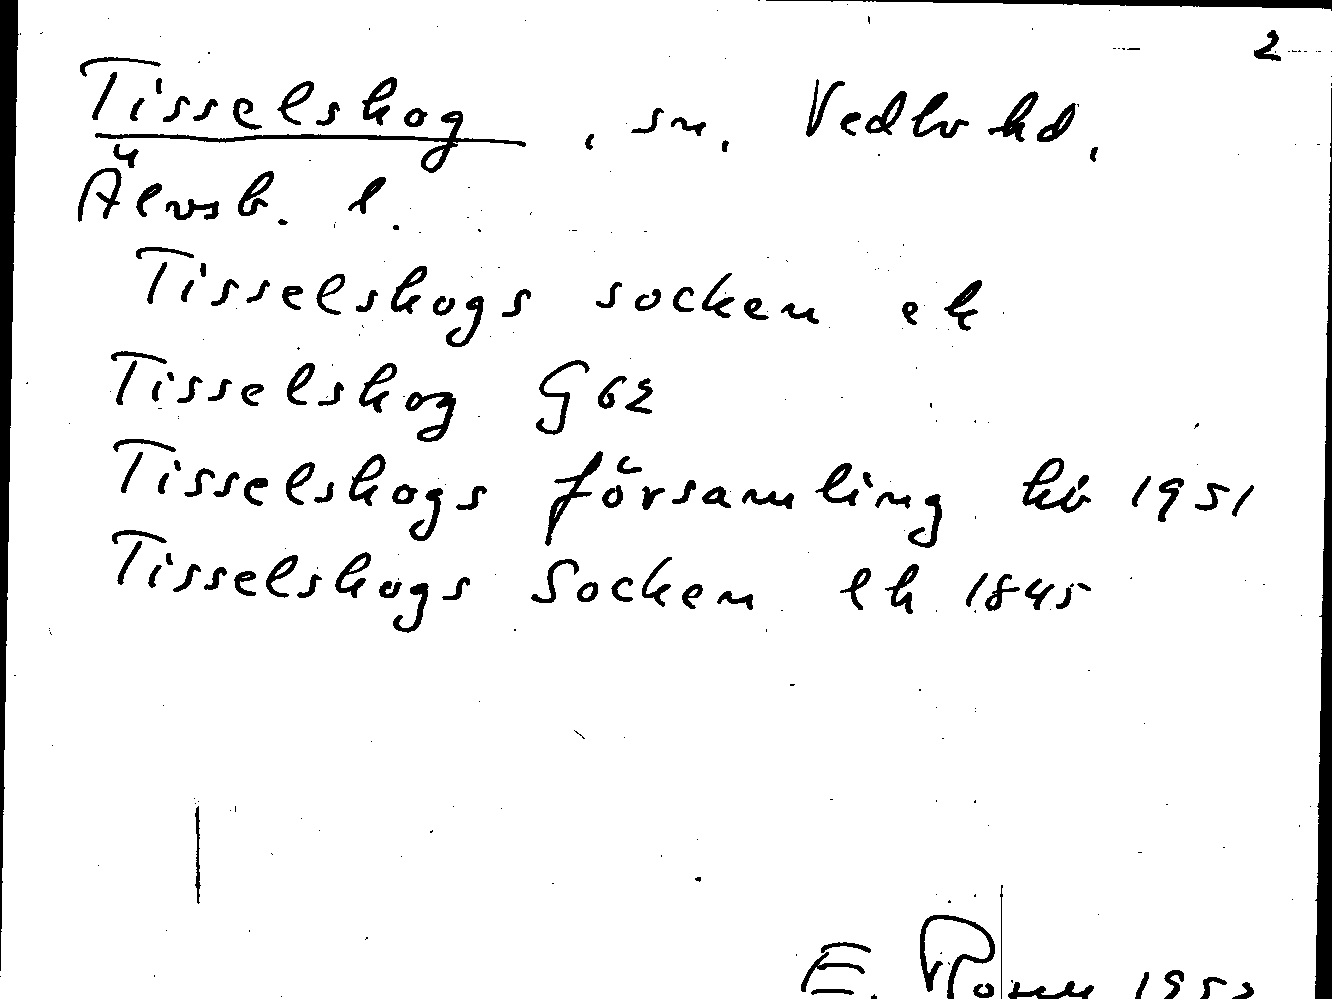 2
Tisselskog, sn, Vedbo hd,
Älvsb. l.
Tisselskogs socken ek
Tisselskog G62
Tisselskogs församling kb 1951
Tisselskogs Socken ek 1845
E. 195